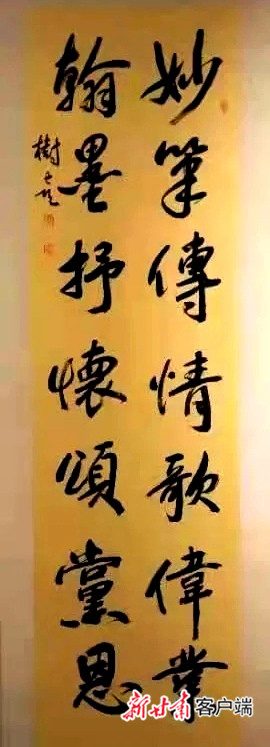 妙筆傳情歌偉業
翰墨抒懷頌黨恩
樹
新甘肃客户端